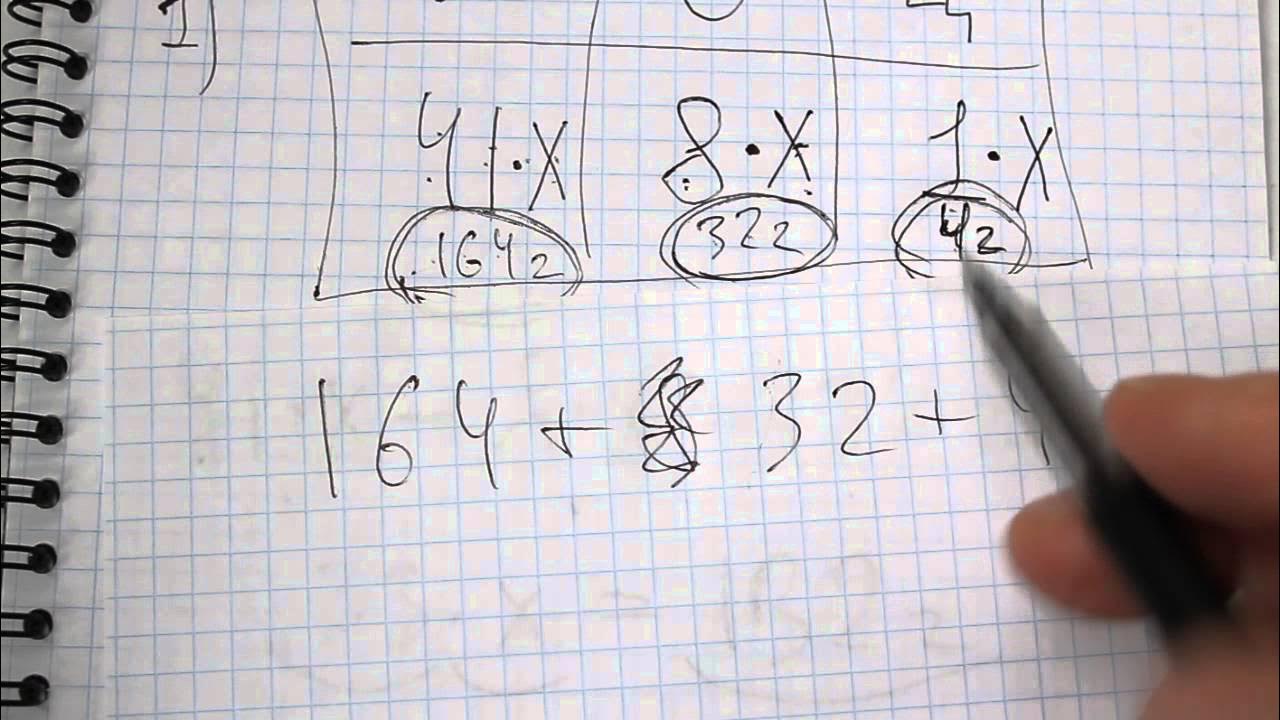 1)
41·x 8·x 1·x
164г 32г 4г
164 + 32 + 4